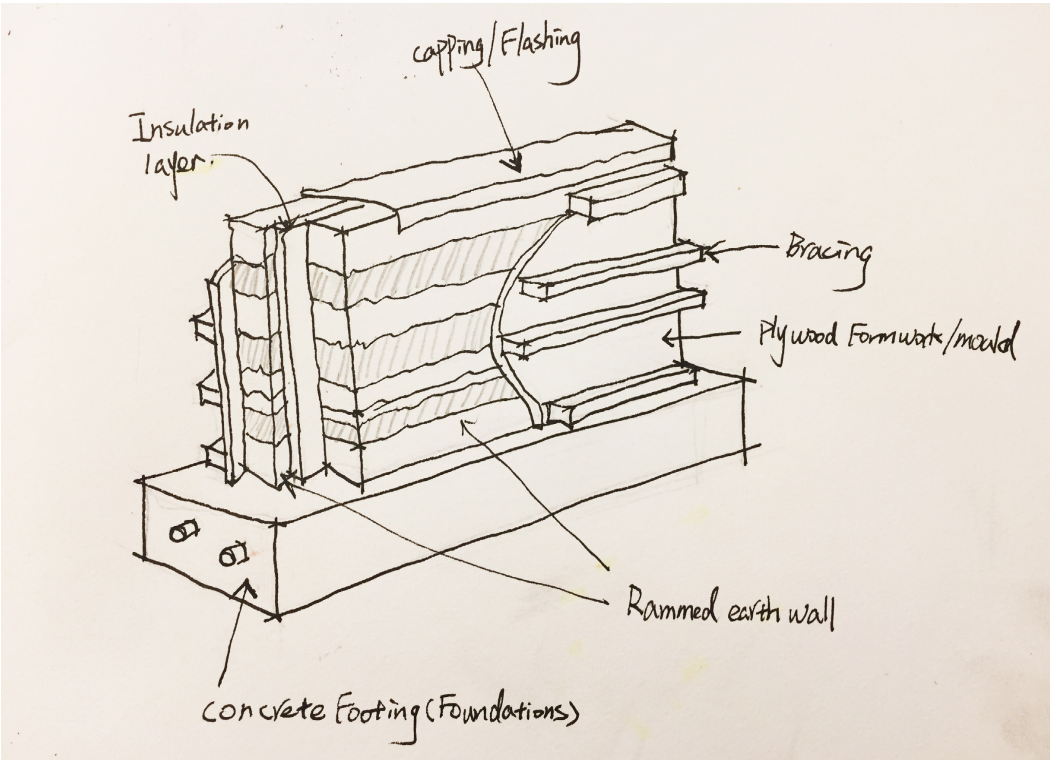 capping/Flashing
Insulation
layer.
Bracing
Plywood Formwork/mould
Rammed earth wall
concrete Footing (Foundations)